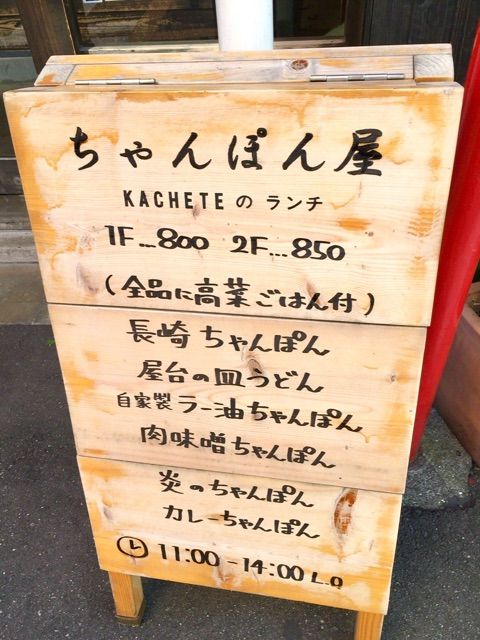 ちゃんぽん屋
KACHETEのランチ
1F…800 2F…850
(全品に高菜ごはん付)
長崎ちゃんぽん
屋台の皿うどん
自家製ラー油ちゃんぽん
肉味噌ちゃんぽん
炎のちゃんぽん
カレーちゃんぽん
11:00-14:00 L.O